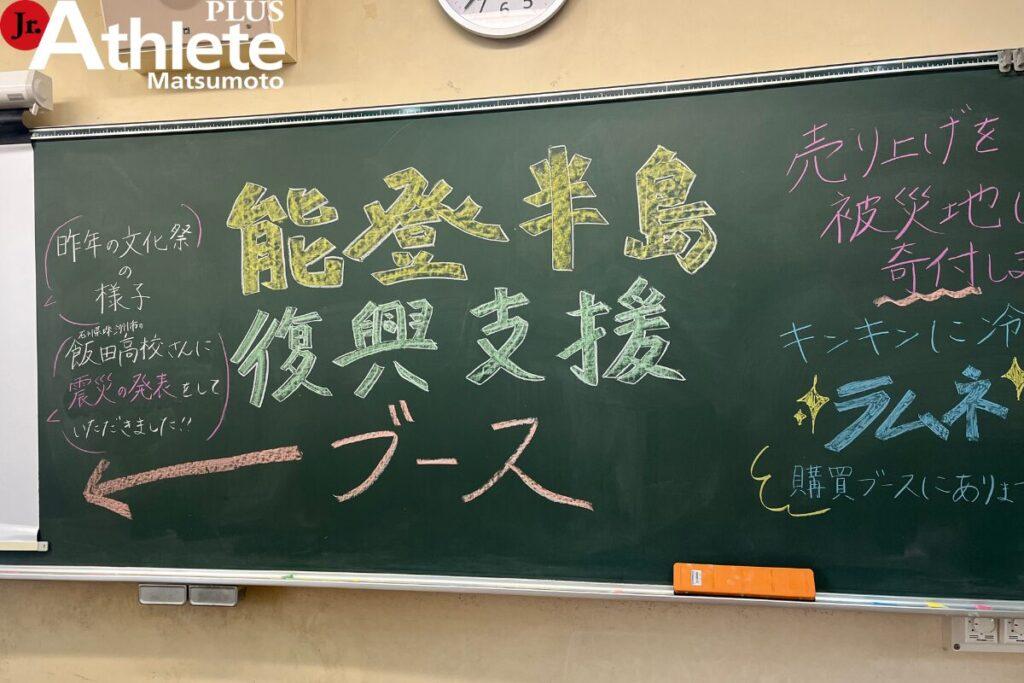 Jr.
Athlete
PLUS
Matsumoto
7 6 5
昨年の文化祭
の
様子
石川県珠洲市の
飯田高校さんに
震災の発表をして
いただきました!!
能登半島
復興支援
ブース
売り上げを
被災地に
寄付しま
キンキンに冷
ラムネ
購買ブースにありま